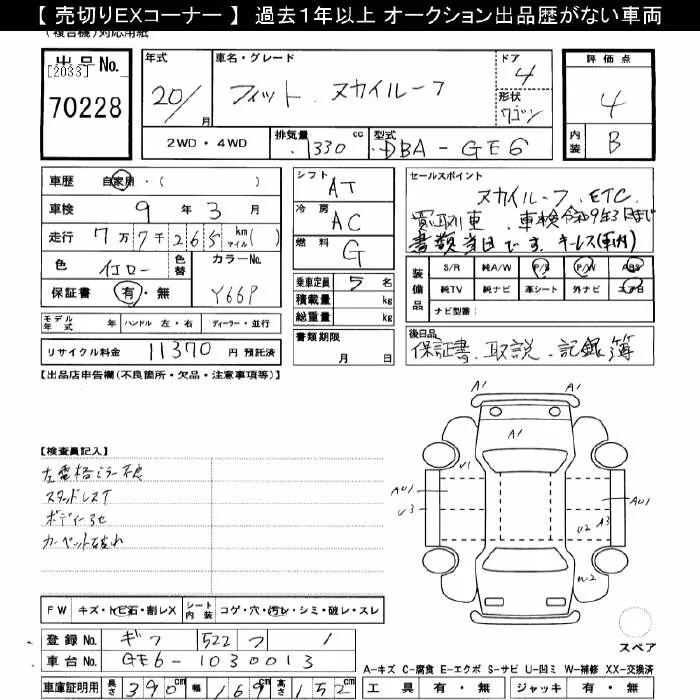 【 売切りEXコーナー 】 過去1年以上 オークション出品歴がない車両
(複合機)対応用紙
出品No.
[2033]
70228
年式
20/
月
車名・グレード
フィット スカイルーフ
ドア
4
形状
ワゴン
2WD・4WD
排気量
1330
cc
型式
DBA-GE6
評価点
4
内装
B
車歴 自家用・( )
車検 9 年 3 月
走行 7万7千265 km マイル ( )
色 イエロー 色替 カラーNo. Y66P
保証書 有・無
モデル年式 年 ハンドル 左・右 ディーラー・並行
リサイクル料金 11370 円 預託済
シフト AT
冷房 AC
燃料 G
乗車定員 5 名
積載量 kg
総重量 kg
書類期限
月 日
セールスポイント
スカイルーフ ETC
買取車 車検令和9年3月まで
書類当日です。キーレス(車内)
装備品
S/R 純A/W P/S P/W ABS
純TV 純ナビ 革シート 外ナビ エアB
ナビ型番:
後日品
保証書、取説、記録簿
【出品店申告欄(不良箇所・欠品・注意事項等)】
【検査員記入】
左電格ミラー不良
スタッドレスT
ボディーヨゴレ
カーペット破れ
A1
A1
A1
U1
AU1
U3
AU1
U2
A3
W2
FW キズ・トビ石・割レX
シート内装 コゲ・穴・汚レ・シミ・破レ・スレ
登録No. ギフ 522 フ 1
車台No. GE6-1030013
車庫証明用 長さ 390cm 幅 169cm 高さ 152cm
スペア
A-キズ C-腐食 E-エクボ S-サビ U-凹ミ W-補修 XX-交換済
工具 有・無 ジャッキ 有・無